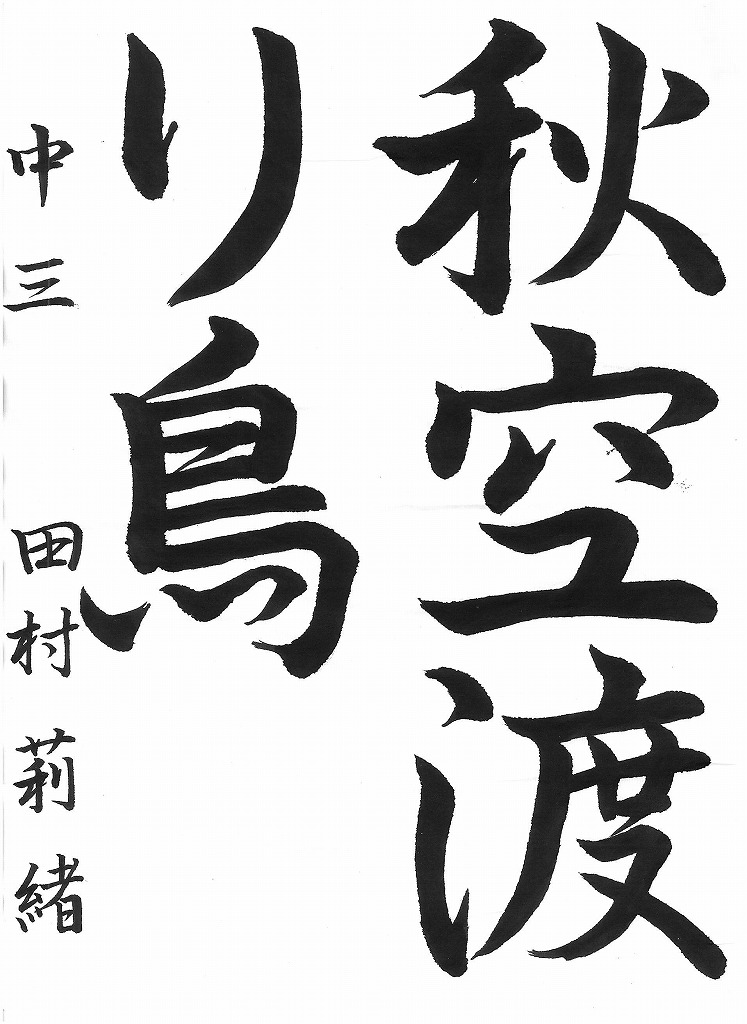 秋空渡
り鳥
中三 田村莉緒